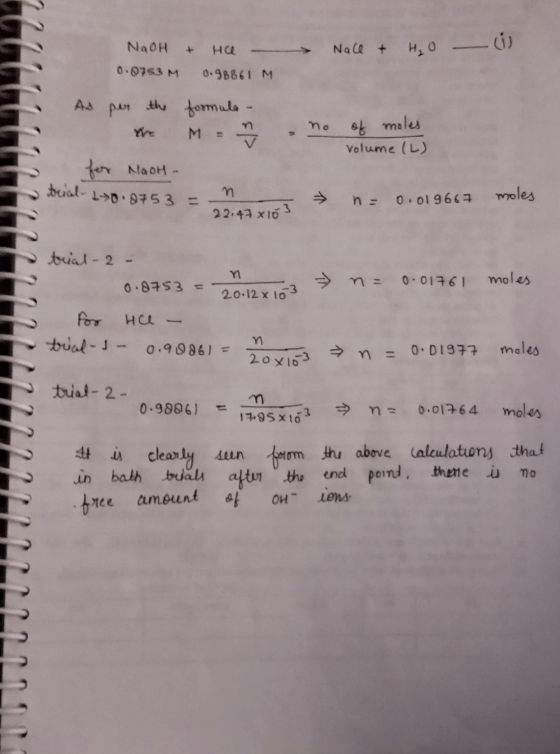 NaOH + HCl ⟶ NaCl + H₂O — (i)
0.8753 M 0.98861 M
As per the formula -
M = n/V = no of moles / volume (L)
for NaOH -
trial-1→0.8753 = n / 22.47 × 10⁻³ ⇒ n = 0.019667 moles
trial-2 -
0.8753 = n / 20.12 × 10⁻³ ⇒ n = 0.01761 moles
For HCl —
trial-1 - 0.98861 = n / 20 × 10⁻³ ⇒ n = 0.01977 moles
trial-2 -
0.98861 = n / 17.85 × 10⁻³ ⇒ n = 0.01764 moles
It is clearly seen from the above calculations that
in both trials after the end point, there is no
free amount of OH⁻ ions.